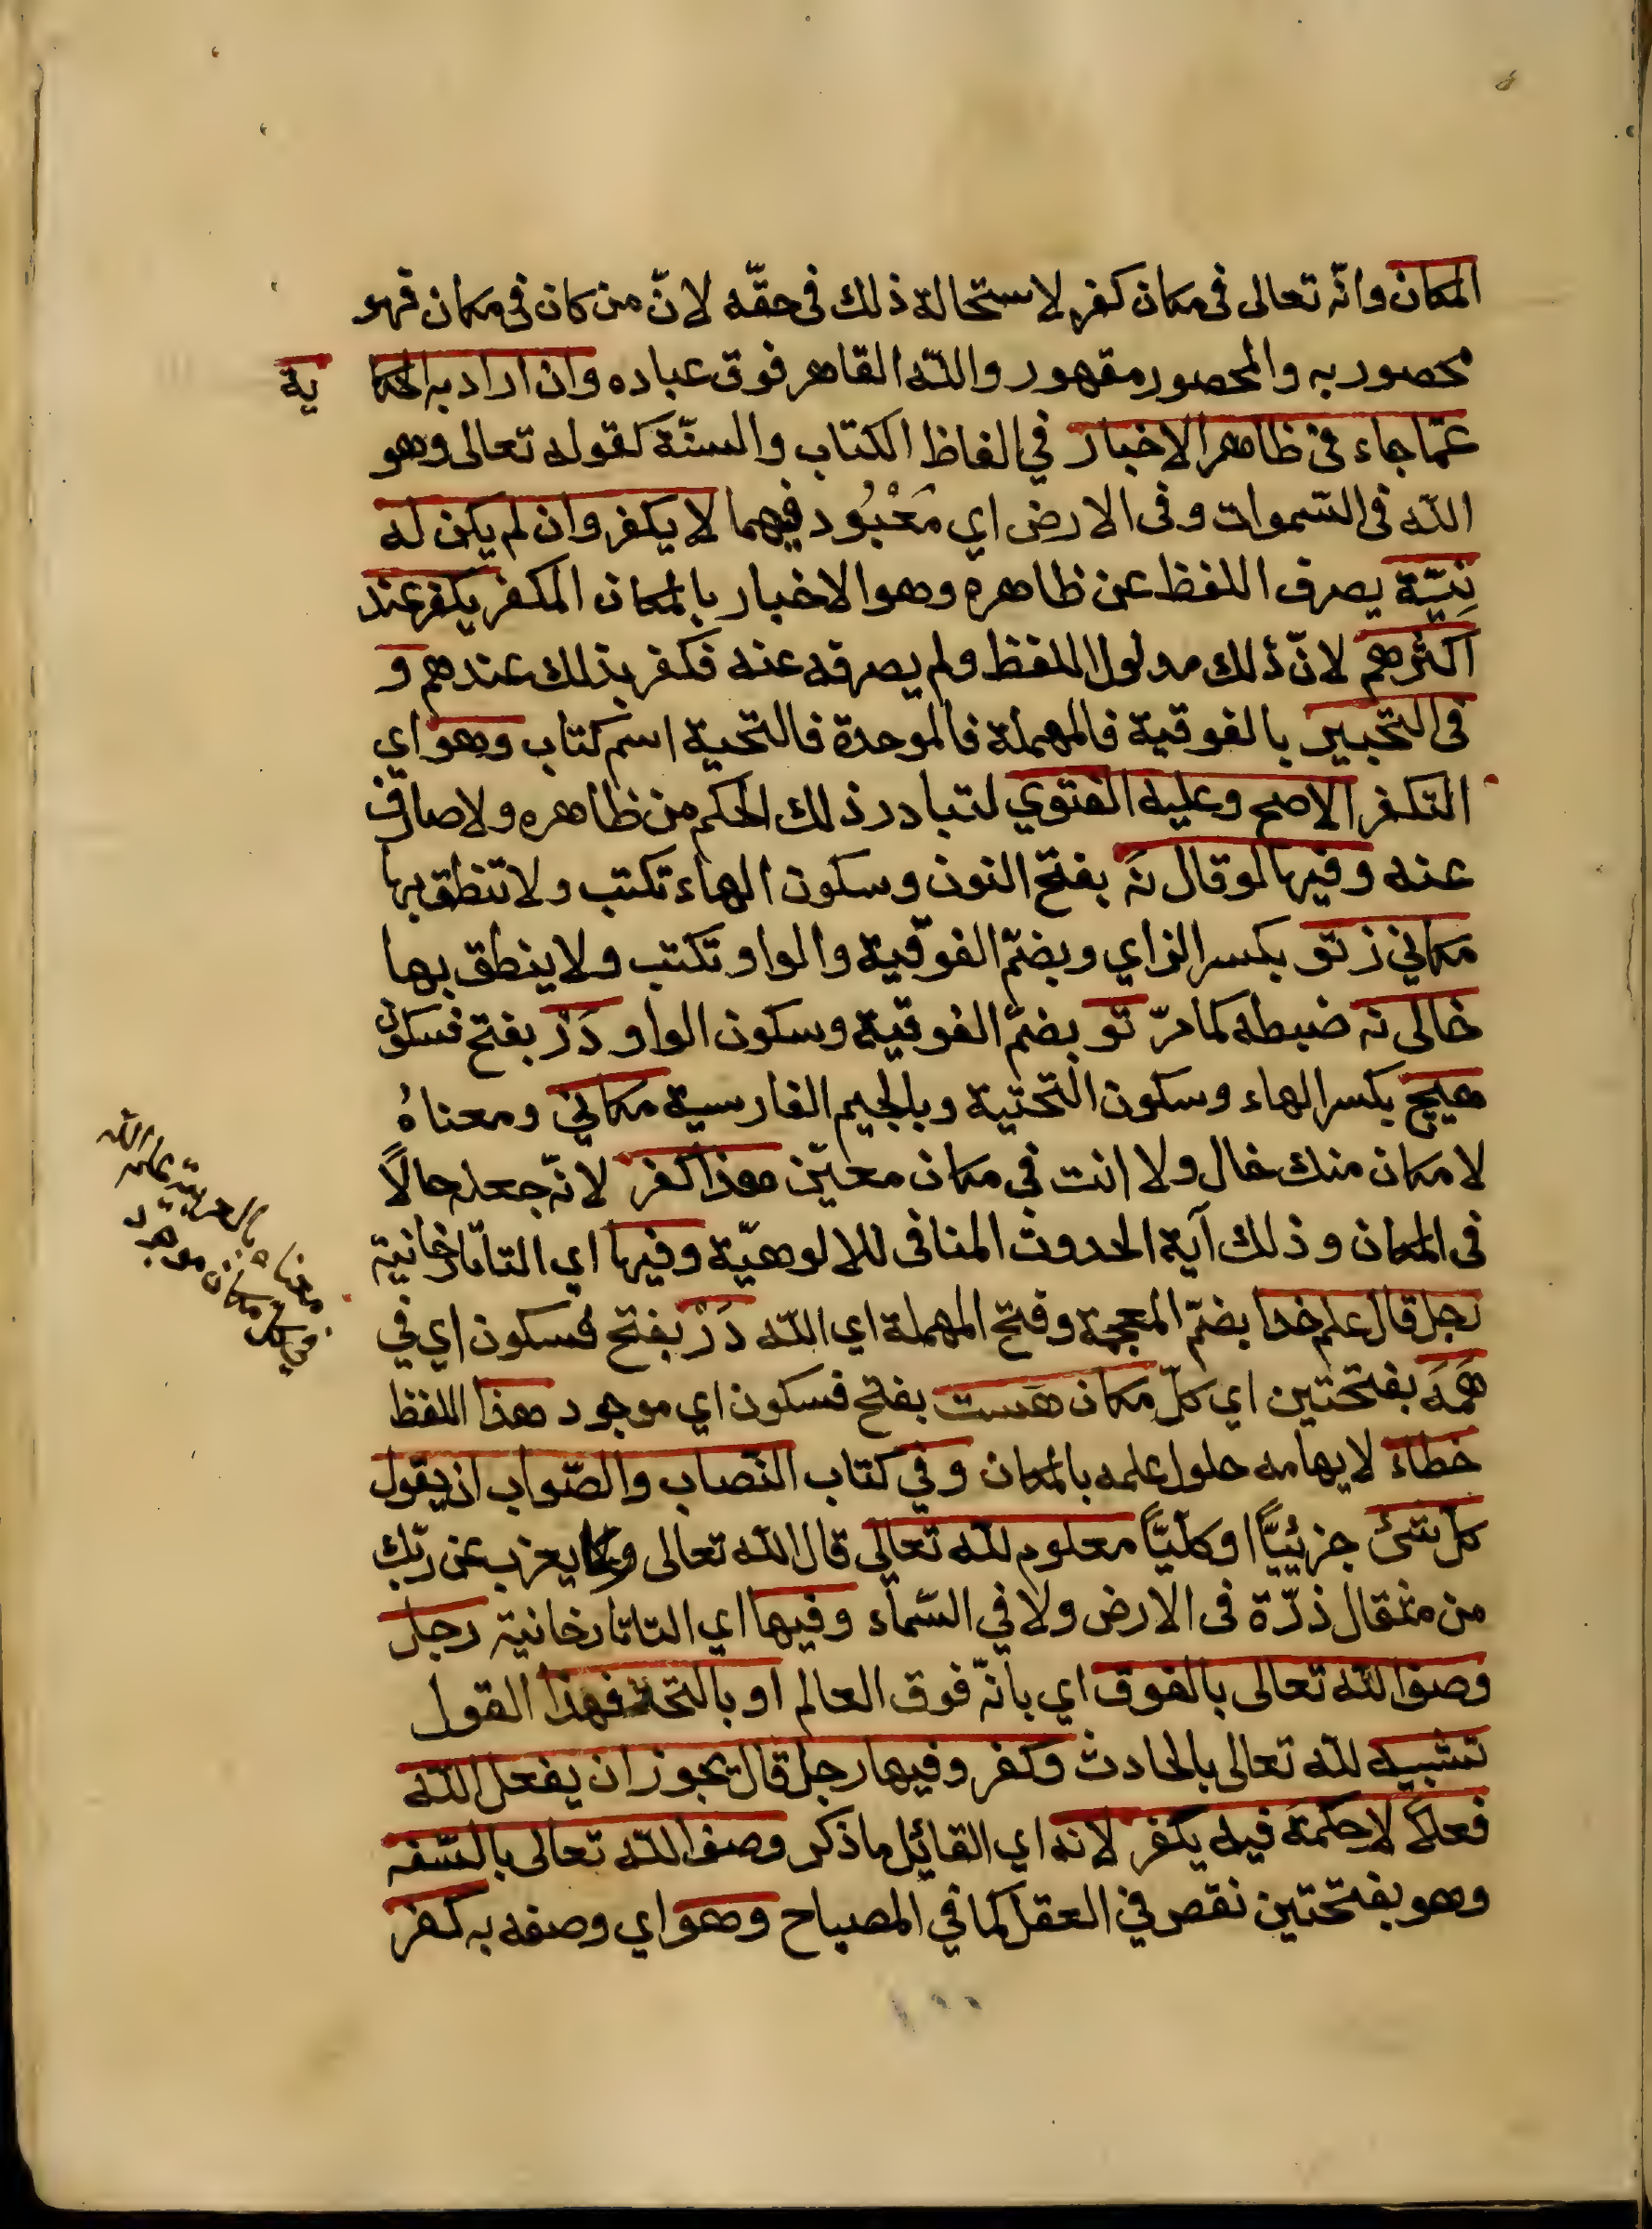 المكان وانّه تعالى فى مكان كفر لاستحالة ذلك فى حقّه لانّ من كان فى مكان فهو
محصور به والمحصور مقهور والله القاهر فوق عباده وان اراد به الحكا ية
عمّا جاء فى ظاهر الاخبار في الفاظ الكتاب والسنّة كقوله تعالى وهو
الله فى السّموات وفى الارض اي مَعْبُود فيهما لا يكفر وان لم يكن له
نِيّة يصرف اللفظ عن ظاهره وهو الاخبار بالمكان المكفر يكفر عند
اكثرهم لانّ ذلك مدلول اللفظ ولم يصرفه عنه فكفر بذلك عندهم و
فى التحبير بالفوقية فالمهملة فالموحدة فالتحية اسم كتاب وهو اي
التكفر الاصح وعليه الفتوي لتبادر ذلك الحكم من ظاهره ولا صارف
عنه وفيها لو قال نَه بفتح النون وسكون الهاء تكتب ولا تنطق بها
مكاني ز تو بكسر الزاي وبضمّ الفوقية والواو تكتب ولا ينطق بها
خالى نه ضبطه كما مرّ تو بضمّ الفوقية وسكون الواو دَرْ بفتح فسكون
هيچ بكسر الهاء وسكون التحتية وبالجيم الفارسية مكاني ومعناهُ
لا مكان منك خال ولا انت في مكان معيّن هذا كفر لانّه جعله حالاً
فى المكان وذلك آية الحدوث المنافى للالوهيّة وفيها اي التاتارخانية
رجل قال علم خدا بضمّ المعجمة وفتح المهملة اي الله دَرْ بفتح فسكون اي في
هَمَه بفتحتين اي كلّ مكان هَست بفتح فسكون اي موجود هذا اللفظ
خطاء لايهامه حلول علمه بالمكان وفي كتاب النّصاب والصّواب ان يقول
كلّ شئ جزئيّاً او كلّيّاً معلوم لله تعالى قال الله تعالى وما يعزب عن ربّك
من مثقال ذرّة فى الارض ولا في السّماء وفيها اي التاتارخانية رجل
وصف الله تعالى بالفوق اي بانّه فوق العالم او بالتحة فهذا القول
تشبيه لله تعالى بالحادث وكفر وفيها رجل قال يجوز ان يفعل الله
فعلاً لا حكمة فيه يكفر لانه اي القائل ما ذكر وصف الله تعالى بالسّفه
وهو بفتحتين نقص في العقل كما في المصباح وهو اي وصفه به كفر
معناه بالعربية علم الله
في كل مكان موجود